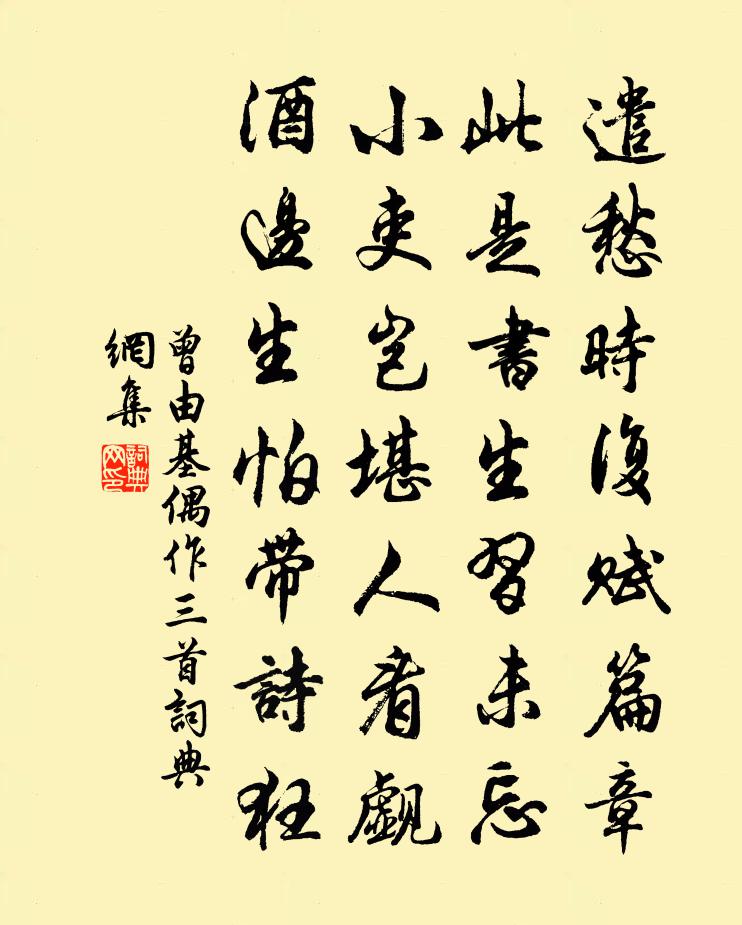 遣愁時復賦篇章
此是書生習未忘
小吏豈堪人看覷
酒邊生怕帶詩狂
曾由基偶作三首詞典
網集
詞典
网印